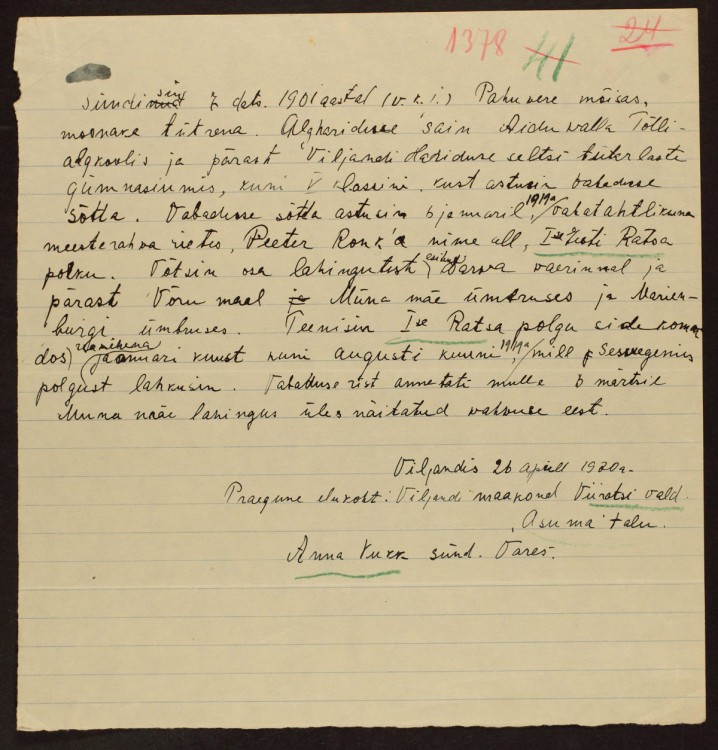 1378 41 24
Sündisin 7 dets. 1901 aastal (v.k.j.) Pahuvere mõisas,
moonaka tütrena. Alghariduse sain Aidu valla Tõlli-
algkoolis ja pärast Viljandi Hariduse seltsi tüterlaste
gümnasiumis, kuni V klassini, kust astusin vabaduse
sõtta. Vabaduse sõtta astusin 6 januaril, 1919a vabatahtlikuna
meesterahva rietes, Peeter Ronk'a nime all, Ise Eesti Ratsa
polku. Võtsin osa lahingutest Narva vaerinnal ja
pärast Võru maal ja Muna mäe ümbruses ja Marien-
burgi ümbruses. Teenisin Ise Ratsa polgu side koman
dos) ratsamikena jaanuari kuust kuni augusti kuuni, 1919a, mill
polgust lahkusin. Vabaduse rist anneteti mulle 6 märtsil
Muna mäe lahingus üles näitatud vahvuse eest.
Viljandis 26 aprill 1920a.
Praegune elukoht: Viljandi maakond Viiratsi vald.
"Asuma" talu.
Anna Vukk sünd. Vares.